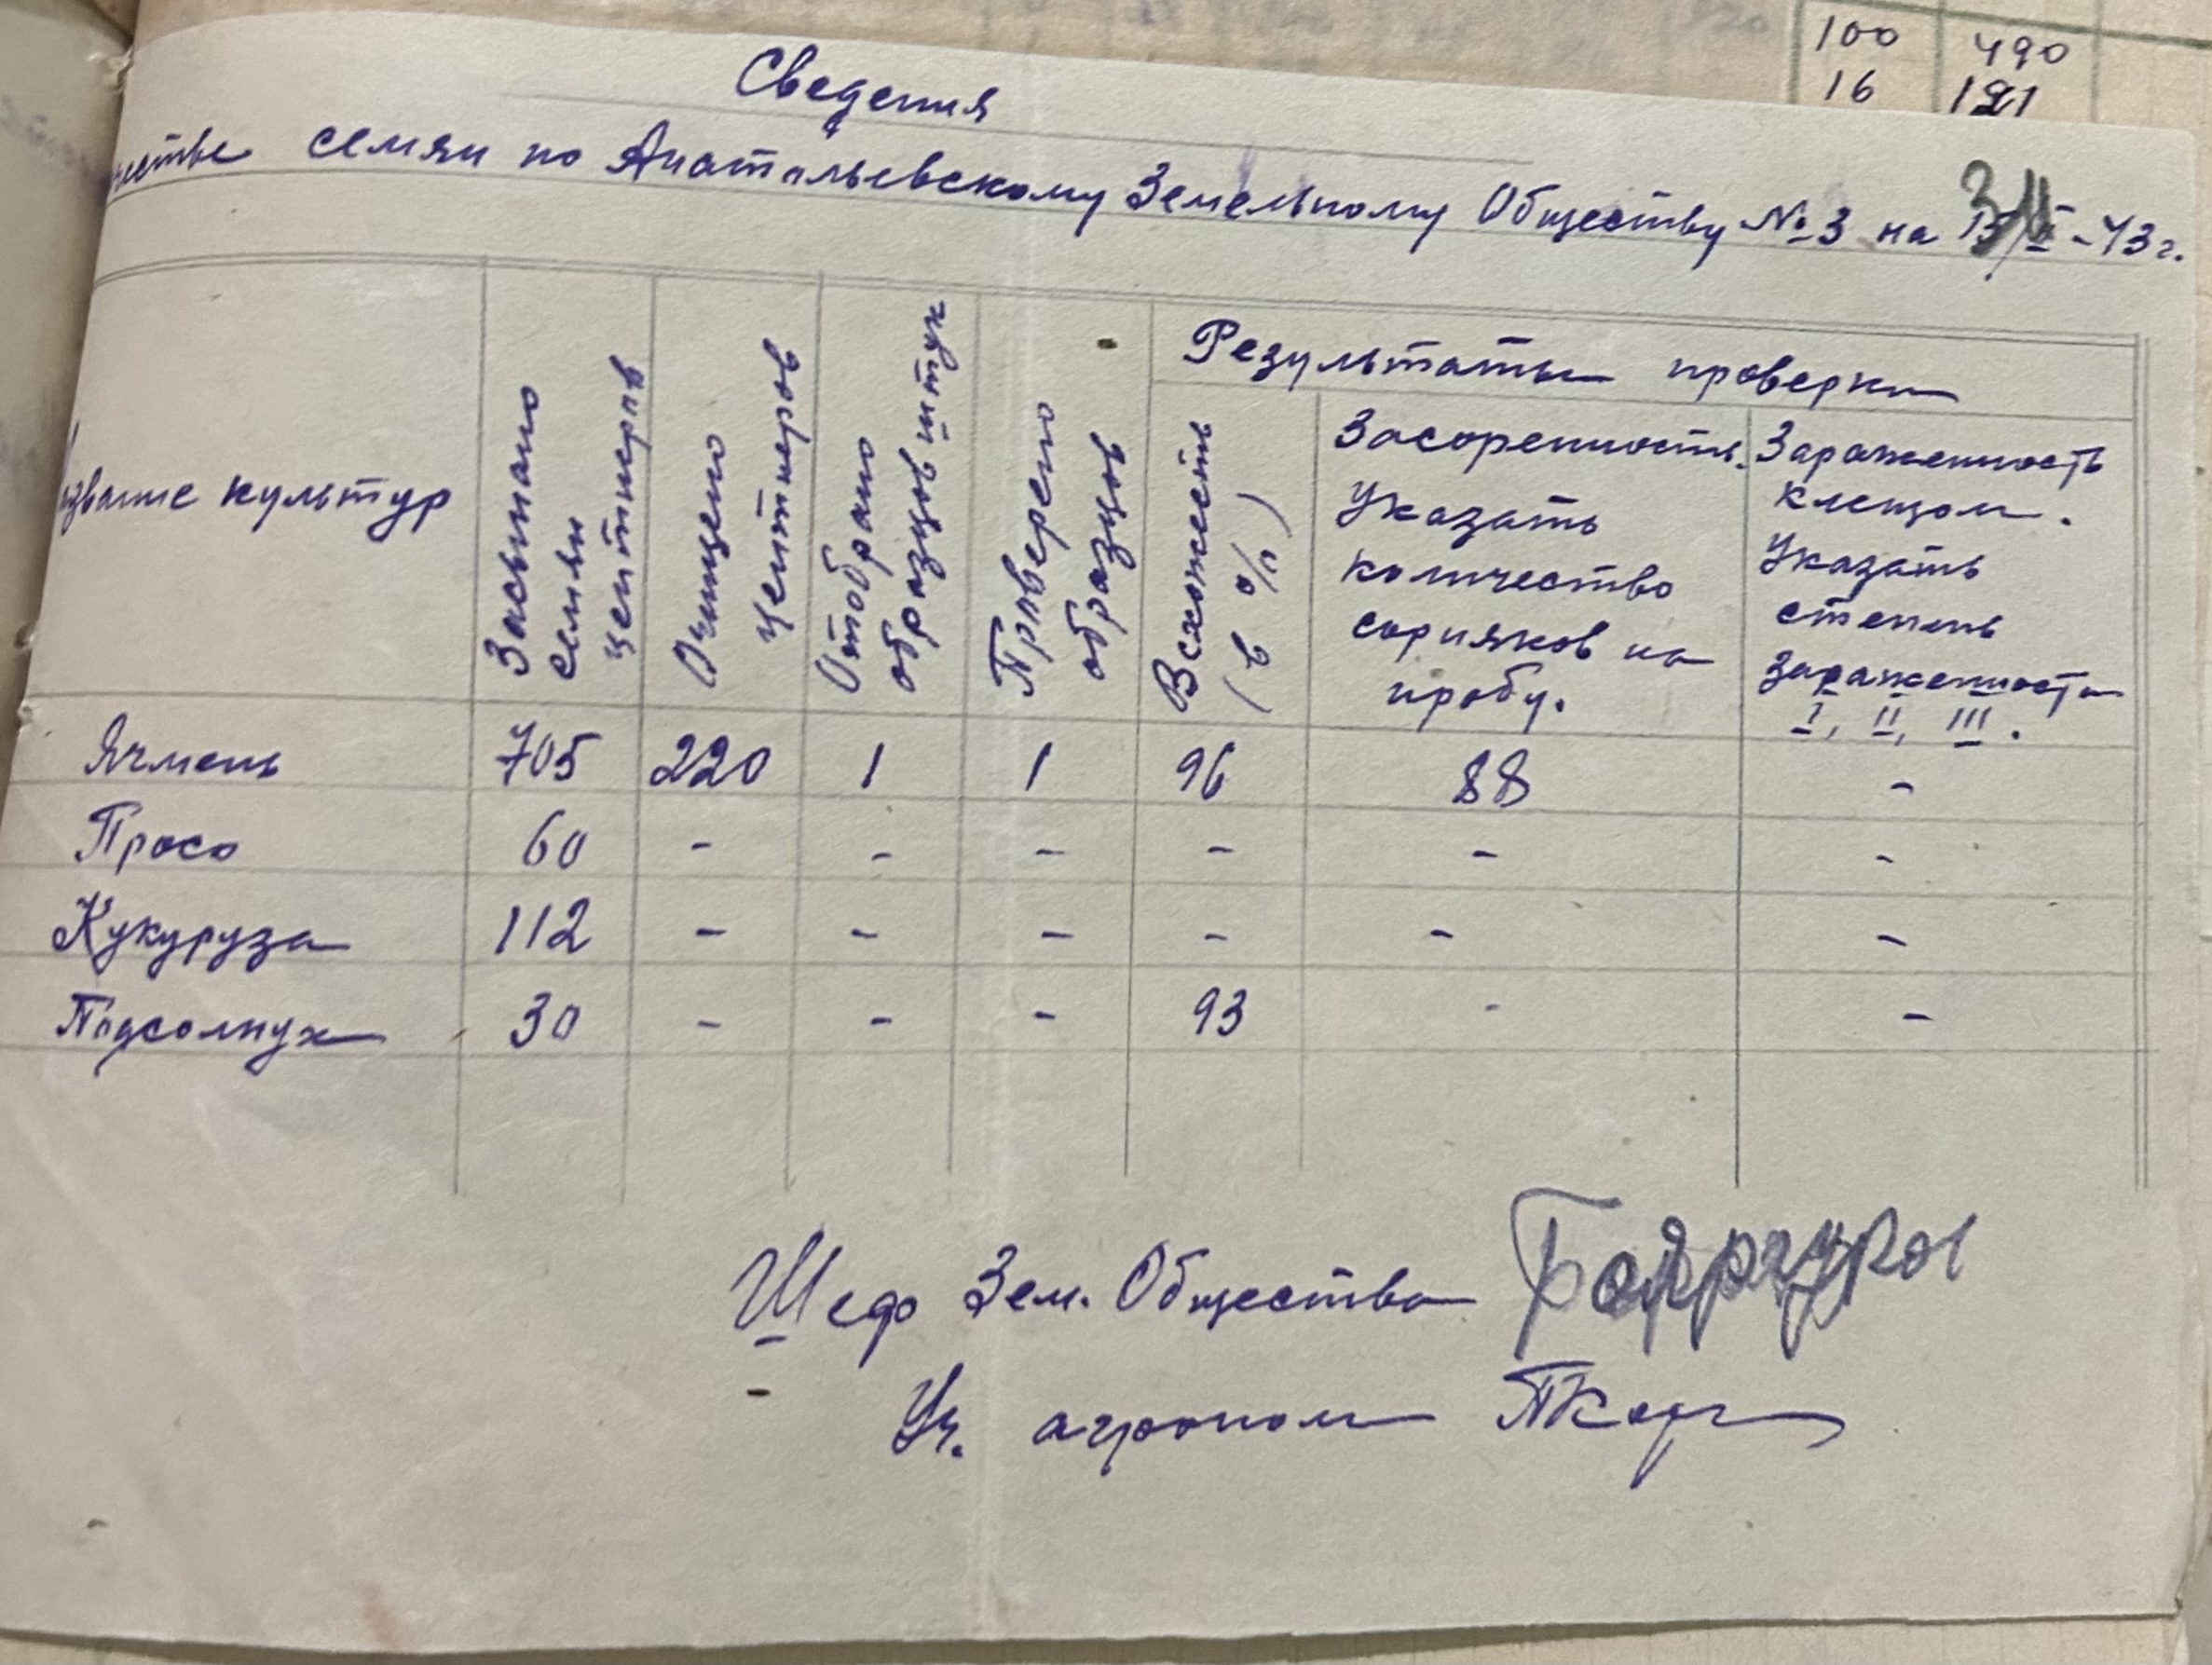 100 490
16 121
Сведения
семян по Анатольевскому Земельному Обществу № 3 на -43 г.
название культур
Засыпано семян центнеров
Очищено центнеров
Отобрано образцов штук
Проверено образцов
Результаты проверки
Всхожесть (в %)
Засоренность.
Указать
количество
сорняков на
пробу.
Зараженность
клещом.
Указать
степень
зараженности
I, II, III.
Ячмень 705 220 1 1 96 88 -
Просо 60 - - - - - -
Кукуруза 112 - - - - - -
Подсолнух 30 - - - 93 - -
Шеф Зем. Общества
Уч. агроном